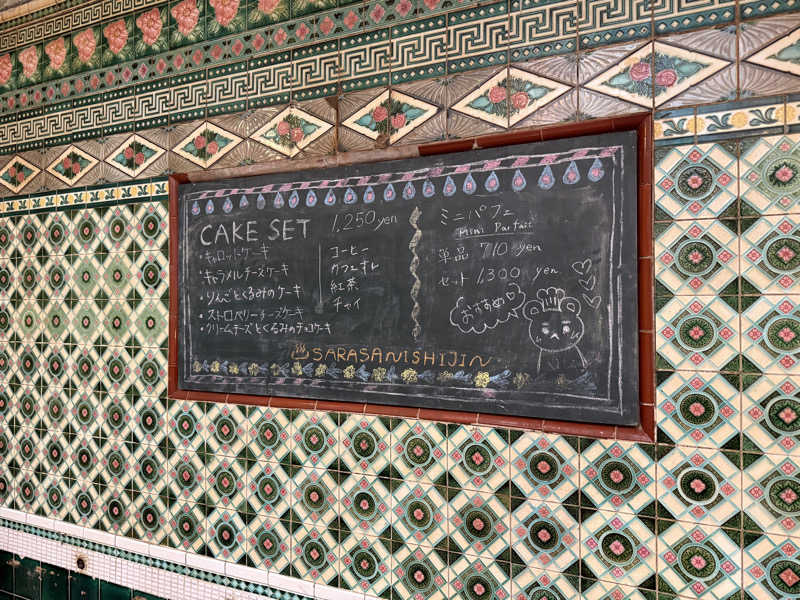 CAKE SET 1,250 yen
・キャロットケーキ
・キャラメルチーズケーキ
・りんごとくるみのケーキ
・ストロベリーチーズケーキ
・クリームチーズとくるみのチョコケーキ
コーヒー
カフェオレ
紅茶
チャイ
ミニパフェ
Mini Parfait
単品 710 yen
セット 1,300 yen
おすすめ♡
♨SARASANISHIJIN